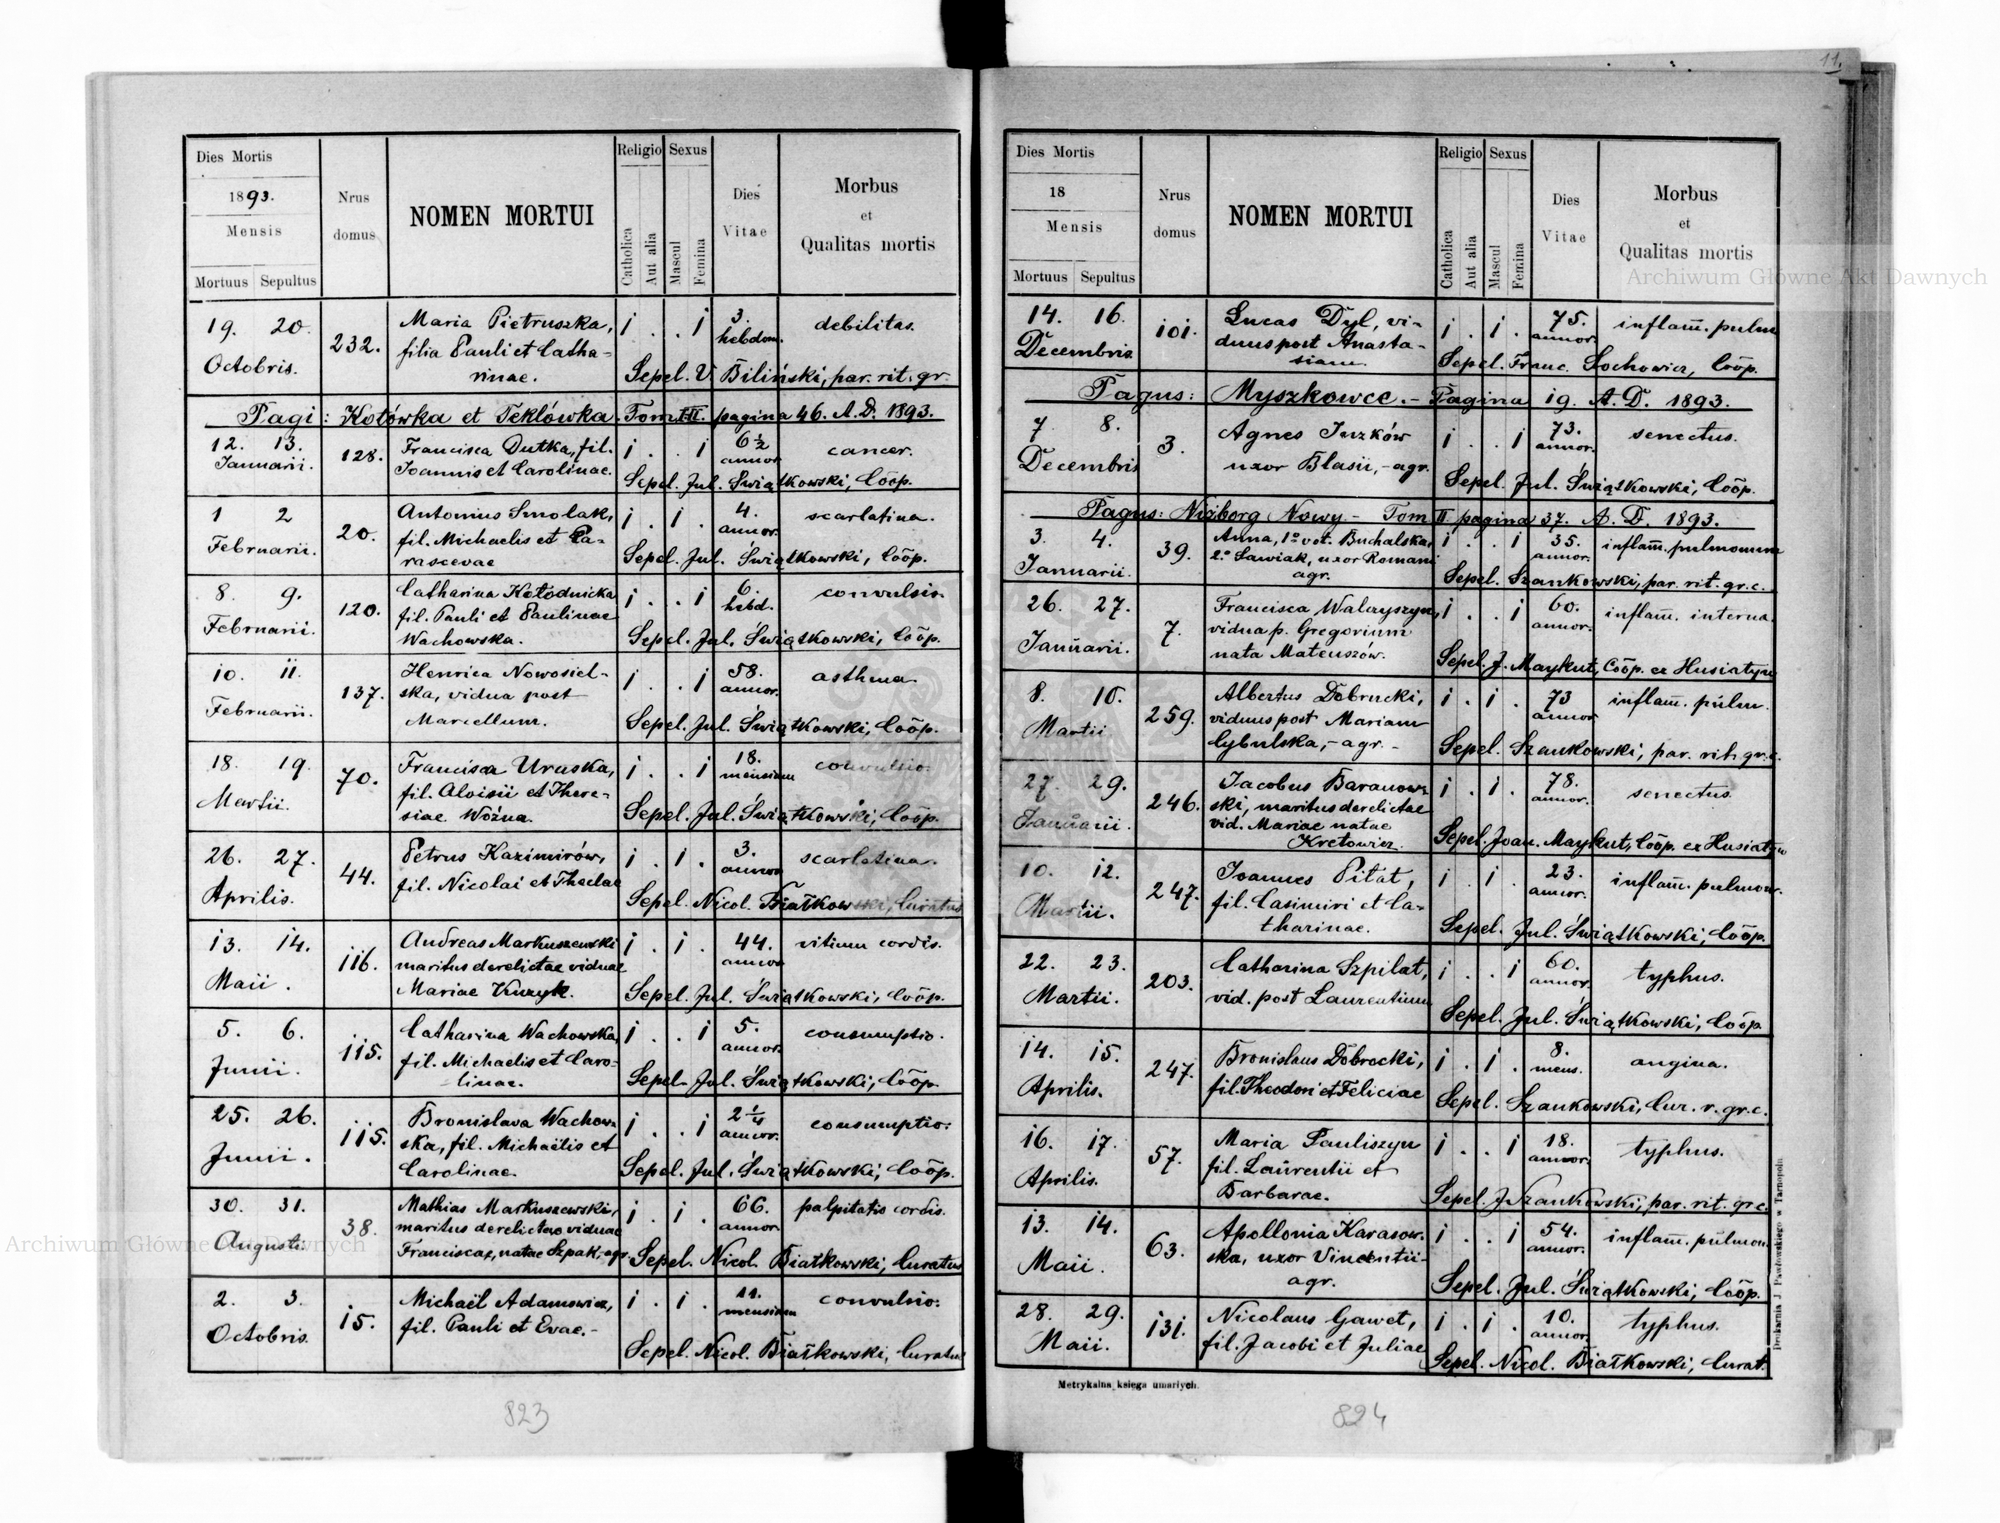 11.
Dies Mortis
1893.
Mensis
Mortuus Sepultus
Nrus
domus
NOMEN MORTUI
Religio
Catholica
Aut alia
Sexus
Mascul
Femina
Dies
Vitae
Morbus
et
Qualitas mortis
19. 20. 232. Maria Pietruszka, i . . i 3. debilitas.
Octobris. filia Pauli et Catha- hebdom.
rinae. Sepel. V. Biliński, par. rit. gr.
Pagi: Kotówka et Teklówka. Tom III. pagina 46. A.D. 1893.
12. 13. 128. Francisca Dutka, fil. i . . i 6 1/2 cancer.
Januarii. Joannis et Carolinae. annor.
Sepel. Jul. Świątkowski, Coöp.
1 2 20. Antonius Smolak, i . i . 4. scarlatina.
Februarii. fil. Michaelis et Pa- annor.
rascevae Sepel. Jul. Świątkowski, Coöp.
8. 9. 120. Catharina Kotodnicka i . . i 6. convulsio.
Februarii. fil. Pauli et Paulinae hebd.
Wachowska. Sepel. Jul. Świątkowski, Coöp.
10. 11. 137. Henrica Nowosiel- i . . i 58. asthma.
Februarii. ska, vidua post annor.
Marcellum. Sepel. Jul. Świątkowski, Coöp.
18. 19. 70. Francisca Uruska, i . . i 18. convulsio.
Martii. fil. Aloisii et There- mensium
siae Woźna. Sepel. Jul. Świątkowski, Coöp.
26. 27. 44. Petrus Kazimirów, i . i . 3. scarlatina.
Aprilis. fil. Nicolai et Theclae annor
Sepel. Nicol. Białkowski, Curatus
13. 14. 116. Andreas Markuszewski i . i . 44. vitium cordis.
Maii. maritus derelictae viduae annor
Mariae Kuzyk. Sepel. Jul. Świątkowski, Coöp.
5. 6. 115. Catharina Wachowska, i . . i 5. consumptio.
Junii. fil. Michaelis et Caro- annor.
linae. Sepel. Jul. Świątkowski, Coöp.
25. 26. 115. Bronislava Wachow- i . . i 2 1/4 consumptio.
Junii. ska, fil. Michaëlis et annor.
Carolinae. Sepel. Jul. Świątkowski, Coöp.
30. 31. 38. Mathias Markuszewski, i . i . 66. palpitatio cordis.
Augusti. maritus derelictae viduae annor.
Franciscae, natae Szpak, agr. Sepel. Nicol. Białkowski, Curatus
2. 3. 15. Michaël Adamowicz, i . i . 11. convulsio.
Octobris. fil. Pauli et Evae.- mensium
Sepel. Nicol. Białkowski, Curatus
823
Dies Mortis
18
Mensis
Mortuus Sepultus
Nrus
domus
NOMEN MORTUI
Religio
Catholica
Aut alia
Sexus
Mascul
Femina
Dies
Vitae
Morbus
et
Qualitas mortis
14. 16. 101. Lucas Dyl, vi- i . i . 75. inflam̄. pulm
Decembris duus post Anasta- annor.
siam. Sepel. Franc. Sochowicz, Coöp.
Pagus: Myszkowce. - Pagina 19. A.D. 1893.
7 8. 3. Agnes Juzków i . . i 73. senectus.
Decembris uxor Blasii, - agr. annor.
Sepel. Jul. Świątkowski, Coöp.
Pagus: Niżborg Nowy - Tom II. pagina 37. A.D. 1893.
3. 4. 39. Anna, 1º vot. Buchalska, i . . i 35. inflam̄. pulmonum
Januarii. 2.º Sawiak, uxor Romani annor.
agr. Sepel. Szankowski, par. rit. gr. c.
26. 27. 7. Francisca Walczyszyn, i . . i 60. inflam̄. interna.
Januarii. vidua p. Gregorium annor.
nata Mateuszów. Sepel. J. Maykut, Coöp. ex Husiatyn
8. 10. 259. Albertus Dobrucki, i . i . 73 inflam̄. pulm.
Martii viduus post Mariam annor
Cybulska, - agr. - Sepel. Szankowski, par. rit. gr. c.
27. 29. 246. Jacobus Baranow- i . i . 78. senectus.
Januarii. ski, maritus derelictae annor.
vid. Mariae natae
Kretowicz. Sepel. Joan. Maykut, Coöp. ex Husiatyn
10. 12. 247. Joannes Pitat, i . i . 23. inflam̄. pulmon.
Martii. fil. Casimiri et Ca- annor.
tharinae. Sepel. Jul. Świątkowski, Coöp.
22. 23. 203. Catharina Szpilat, i . . i 60. typhus.
Martii. vid. post Laurentium annor.
Sepel. Jul. Świątkowski, Coöp.
14. 15. 247. Bronislaus Dobrocki, i . i . 8. angina.
Aprilis. fil. Theodori et Feliciae mens.
Sepel. Szankowski, Cur. r. gr. c.
16. 17. 57. Maria Pauliszyn i . . i 18. typhus.
Aprilis. fil. Laurentii et annor.
Barbarae. Sepel. J. Szankowski, par. rit. gr. c.
13. 14. 63. Apollonia Karasow- i . . i 54. inflam̄. pulmon.
Maii. ska, uxor Vincentii annor.
agr. Sepel. Jul. Świątkowski, Coöp.
28. 29. 131. Nicolaus Gawet, i . i . 10. typhus.
Maii. fil. Jacobi et Juliae annor.
Sepel. Nicol. Białkowski, Curat.
Metrykalna księga umarłych.
Drukarnia J. Pawłowskiego w Tarnopolu.
824
Archiwum Główne Akt Dawnych
Archiwum Główne Akt Dawnych